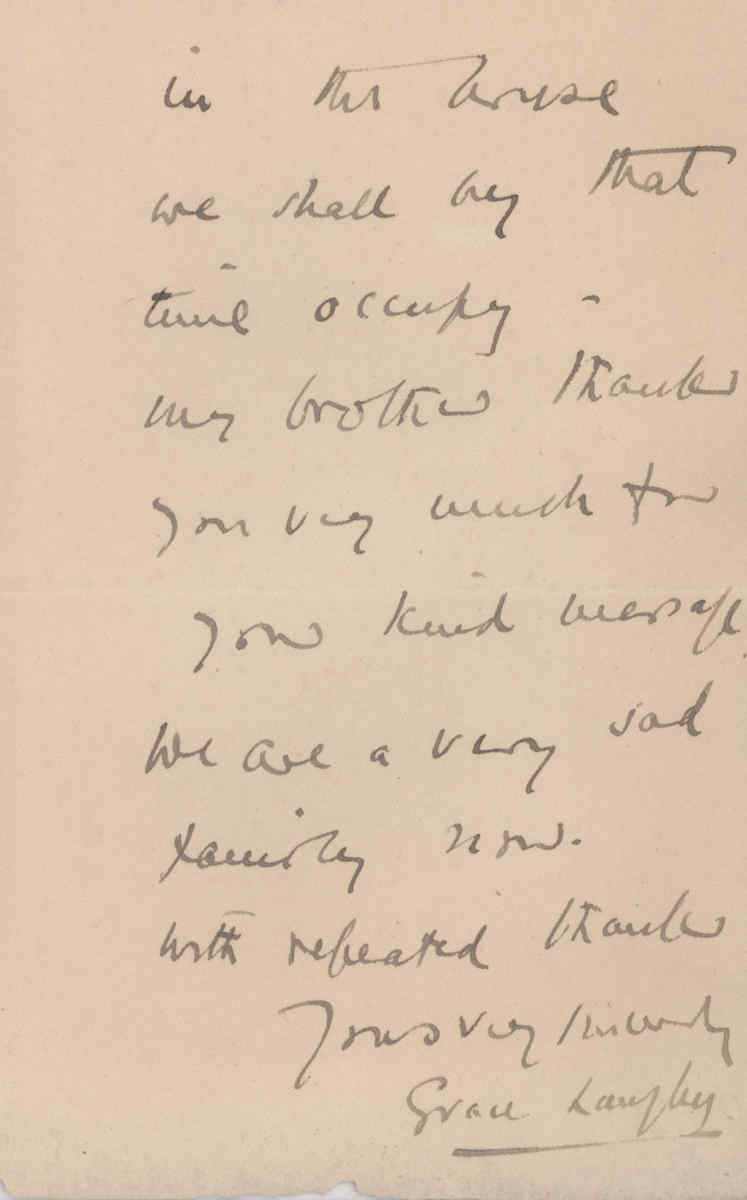 in the house
we shall by that
time occupy -
my brother thanks
you very much for
your kind message
We are a very sad
family now.
With repeated thanks
Yours very sincerely
Grace Langley